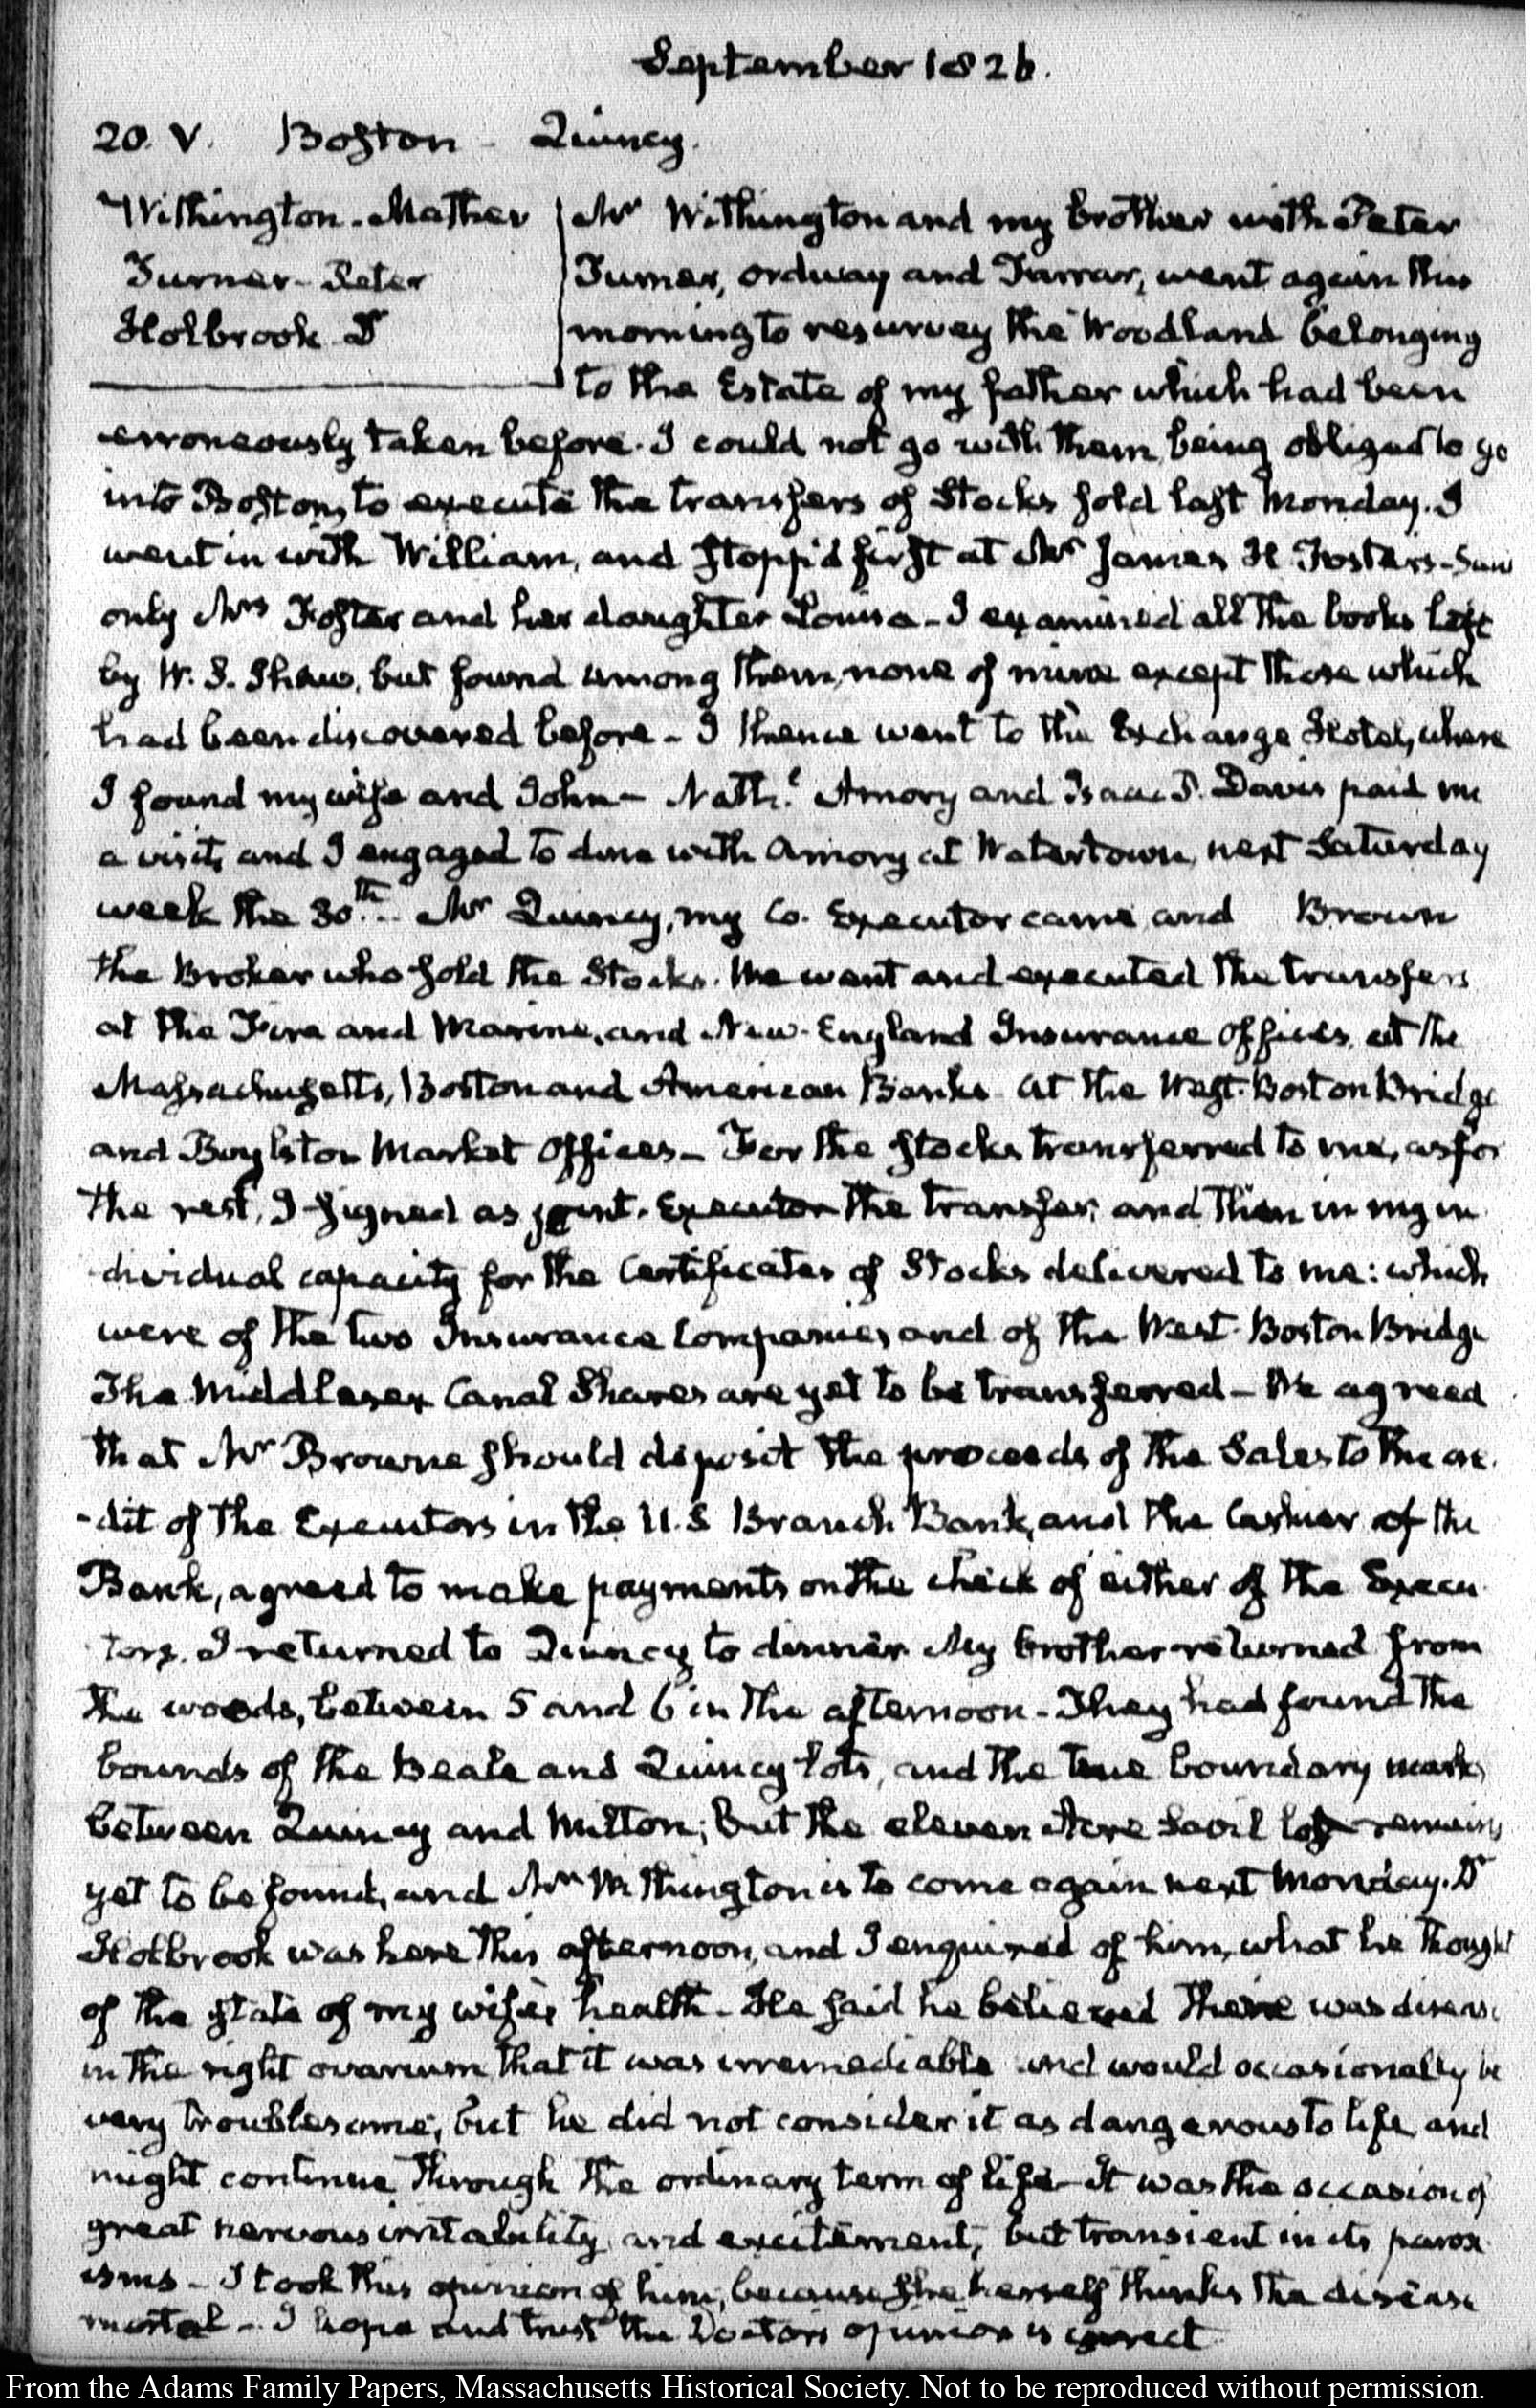 September 1826.
20. V. Boston - Quincy.
Withington - Mather
Turner - Peter
Holbrook Dr
Mr Withington and my brother with Peter
Turner, Ordway and Farrar, went again this
morning to resurvey the Woodland belonging
to the Estate of my father which had been
erroneously taken before. I could not go with them being obliged to go
into Boston, to execute the transfers of Stocks sold last Monday. I
went in with William, and stopp'd first at Mr James H Foster's - Saw
only Mrs Foster and her daughter Louisa - I examined all the books left
by W. S. Shaw, but found among them, none of mine except those which
had been discovered before - I thence went to the Exchange Hotel, where
I found my wife and John - Nathl. Amory and Isaac P. Davis paid me
a visit, and I engaged to dine with Amory at Watertown, next Saturday
week the 30th. Mr Quincy, my Co. Executor came, and Brown
the Broker who sold the Stocks. We went and executed the transfers
at the Fire and Marine, and New-England Insurance Offices, at the
Massachusetts, Boston and American Banks at the West-Boston Bridge
and Boylston Market Offices - For the stocks transferred to me, as for
the rest, I signed as joint-Executor the transfer, and then in my in
dividual capacity for the Certificates of Stocks delivered to me: which
were of the two Insurance Companies, and of the West-Boston Bridge
The Middlesex Canal Shares are yet to be transferred - We agreed
that Mr Browne should deposit the proceeds of the Sales to the cre-
-dit of the Executors in the U.S Branch Bank, and the Cashier of the
Bank, agreed to make payments on the check of either of the Execu-
tors. I returned to Quincy to dinner. My brother returned from
the woods, between 5 and 6 in the afternoon - They had found the
bounds of the Beale and Quincy lots, and the true boundary marks
between Quincy and Milton; but the eleven Acre Savil lot remains
yet to be found, and Mr Withington is to come again next Monday. Dr
Holbrook was here this afternoon, and I enquired of him, what he thought
of the state of my wife's health - He said he believed there was disease
in the right ovarium that it was irremediable and would occasionally be
very troublesome, but he did not consider it as dangerous to life, and
might continue through the ordinary term of life - It was the occasion of
great nervous irritability, and excitement, but transient in its parox
isms - I took this opinion of him, because she herself thinks the disease
mortal - I hope and trust the Doctor's opinion is correct
From the Adams Family Papers, Massachusetts Historical Society. Not to be reproduced without permission.